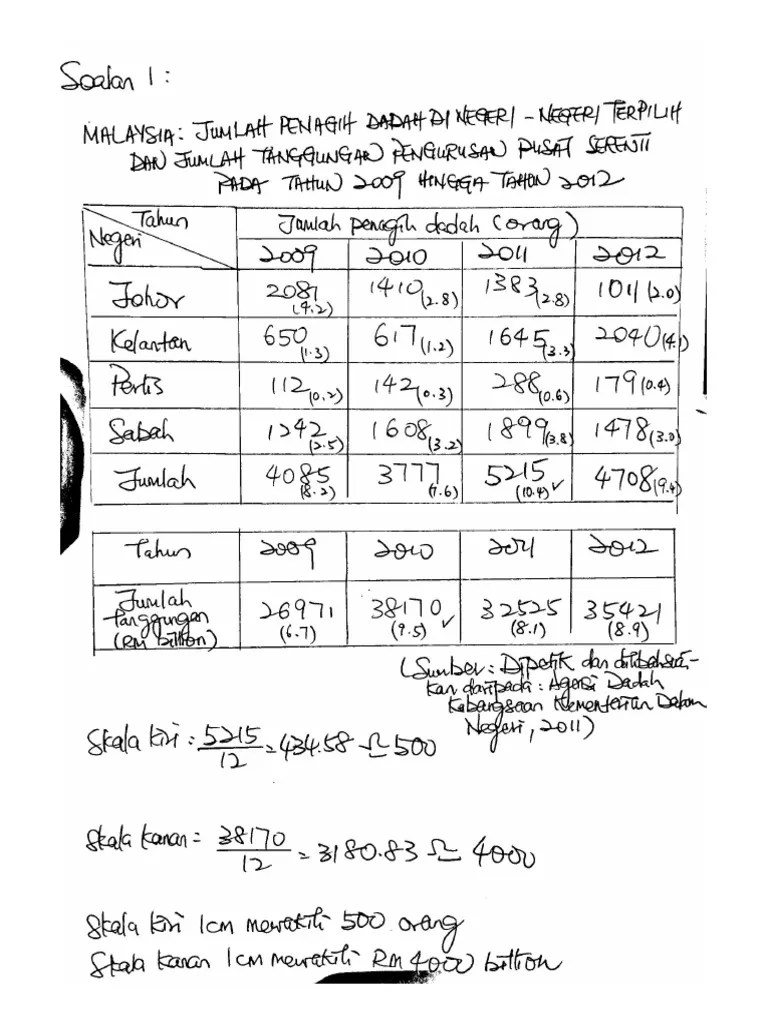 Soalan 1:
MALAYSIA: JUMLAH PENAGIH DADAH DI NEGERI-NEGERI TERPILIH
DAN JUMLAH TANGGUNGAN PENGURUSAN PUSAT SERENTI
PADA TAHUN 2009 HINGGA TAHUN 2012
Tahun Jumlah penagih dadah (orang)
Negeri 2009 2010 2011 2012
Johor 2081 (4.2) 1410 (2.8) 1383 (2.8) 1011 (2.0)
Kelantan 650 (1.3) 617 (1.2) 1645 (3.3) 2040 (4.1)
Perlis 112 (0.2) 142 (0.3) 288 (0.6) 179 (0.4)
Sabah 1242 (2.5) 1608 (3.2) 1899 (3.8) 1478 (3.0)
Jumlah 4085 (8.2) 3777 (7.6) 5215 (10.4) ✓ 4708 (9.4)
Tahun 2009 2010 2011 2012
Jumlah
tanggungan
(RM billion) 26971 (6.7) 38170 (9.5) ✓ 32525 (8.1) 35421 (8.9)
(Sumber: Dipetik dan diubahsuai-
kan daripada: Agensi Dadah
Kebangsaan Kementerian Dalam
Negeri, 2011)
Skala kiri : 5215/12 = 434.58 ≏ 500
Skala kanan = 38170/12 = 3180.83 ≏ 4000
Skala kiri 1cm mewakili 500 orang
Skala kanan 1cm mewakili RM 4000 billion